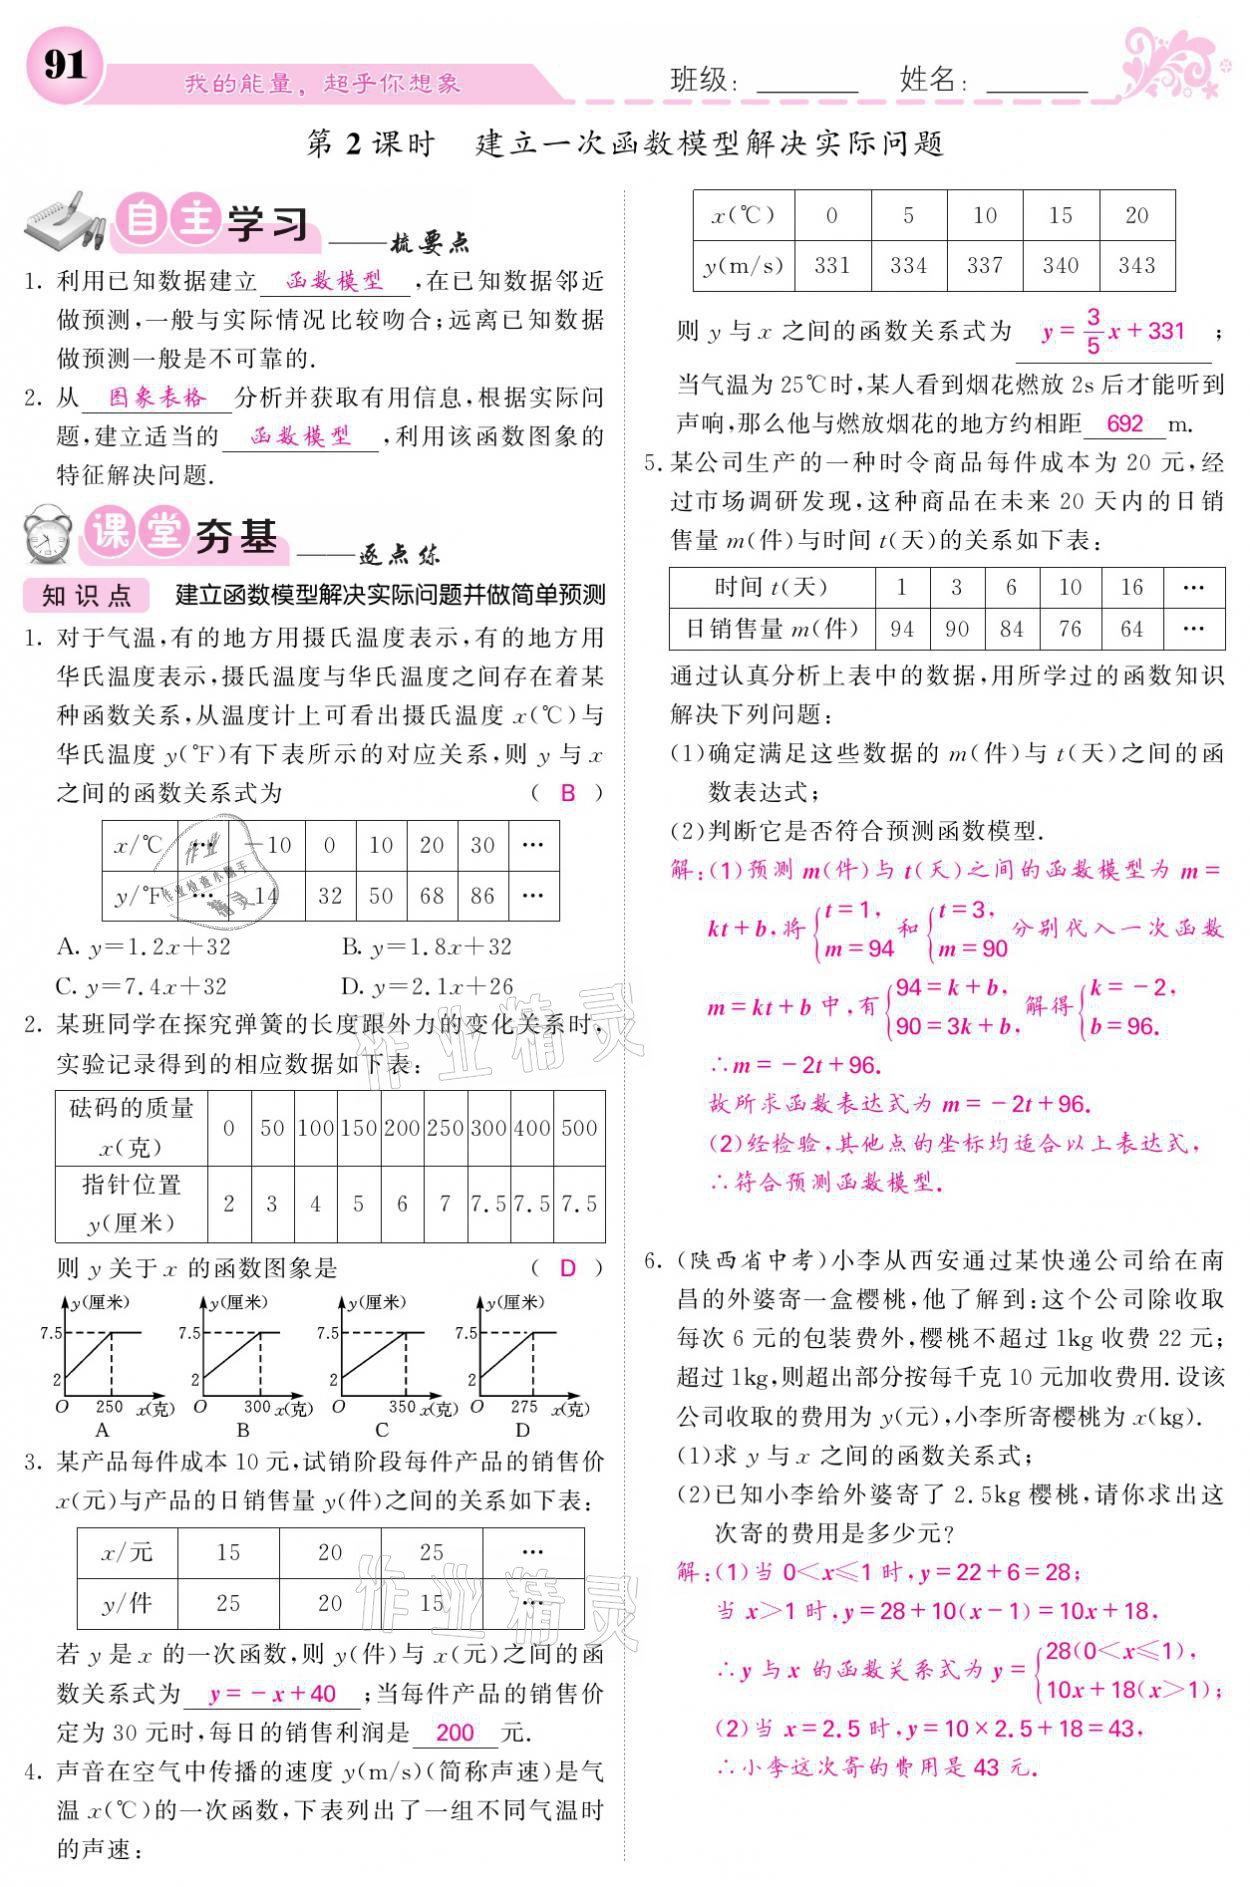 91
我的能量，超乎你想象
班级：
姓名：
第2课时 建立一次函数模型解决实际问题
自主学习 ——梳要点
1. 利用已知数据建立 函数模型 ,在已知数据邻近
做预测,一般与实际情况比较吻合;远离已知数据
做预测一般是不可靠的.
2. 从 图象表格 分析并获取有用信息,根据实际问
题,建立适当的 函数模型 ,利用该函数图象的
特征解决问题.
课堂夯基 ——逐点练
知识点 建立函数模型解决实际问题并做简单预测
1. 对于气温,有的地方用摄氏温度表示,有的地方用
华氏温度表示,摄氏温度与华氏温度之间存在着某
种函数关系,从温度计上可看出摄氏温度 x(℃)与
华氏温度 y(℉)有下表所示的对应关系,则 y 与 x
之间的函数关系式为 ( B )
x/℃ … -10 0 10 20 30 …
y/℉ … 14 32 50 68 86 …
A. y=1.2x+32 B. y=1.8x+32
C. y=7.4x+32 D. y=2.1x+26
2. 某班同学在探究弹簧的长度跟外力的变化关系时,
实验记录得到的相应数据如下表:
砝码的质量 x(克) 0 50 100 150 200 250 300 400 500
指针位置 y(厘米) 2 3 4 5 6 7 7.5 7.5 7.5
则 y 关于 x 的函数图象是 ( D )
y(厘米) y(厘米) y(厘米) y(厘米)
7.5 7.5 7.5 7.5
2 2 2 2
O 250 x(克) O 300 x(克) O 350 x(克) O 275 x(克)
A B C D
3. 某产品每件成本 10 元,试销阶段每件产品的销售价
x(元)与产品的日销售量 y(件)之间的关系如下表:
x/元 15 20 25 …
y/件 25 20 15 …
若 y 是 x 的一次函数,则 y(件)与 x(元)之间的函
数关系式为 y=-x+40 ;当每件产品的销售价
定为 30 元时,每日的销售利润是 200 元.
4. 声音在空气中传播的速度 y(m/s)(简称声速)是气
温 x(℃)的一次函数,下表列出了一组不同气温时
的声速:
x(℃) 0 5 10 15 20
y(m/s) 331 334 337 340 343
则 y 与 x 之间的函数关系式为 y=3/5x+331 ;
当气温为 25℃时,某人看到烟花燃放 2s 后才能听到
声响,那么他与燃放烟花的地方约相距 692 m.
5. 某公司生产的一种时令商品每件成本为 20 元,经
过市场调研发现,这种商品在未来 20 天内的日销
售量 m(件)与时间 t(天)的关系如下表:
时间 t(天) 1 3 6 10 16 …
日销售量 m(件) 94 90 84 76 64 …
通过认真分析上表中的数据,用所学过的函数知识
解决下列问题:
(1)确定满足这些数据的 m(件)与 t(天)之间的函
数表达式;
(2)判断它是否符合预测函数模型.
解:(1)预测 m(件)与 t(天)之间的函数模型为 m=
kt+b,将{t=1, m=94 和{t=3, m=90 分别代入一次函数
m=kt+b 中,有{94=k+b, 90=3k+b, 解得{k=-2, b=96.
∴m=-2t+96.
故所求函数表达式为 m=-2t+96.
(2)经检验,其他点的坐标均适合以上表达式,
∴符合预测函数模型.
6. (陕西省中考)小李从西安通过某快递公司给在南
昌的外婆寄一盒樱桃,他了解到:这个公司除收取
每次 6 元的包装费外,樱桃不超过 1kg 收费 22 元;
超过 1kg,则超出部分按每千克 10 元加收费用.设该
公司收取的费用为 y(元),小李所寄樱桃为 x(kg).
(1)求 y 与 x 之间的函数关系式;
(2)已知小李给外婆寄了 2.5kg 樱桃,请你求出这
次寄的费用是多少元?
解:(1)当 0<x≤1 时,y=22+6=28;
当 x>1 时,y=28+10(x-1)=10x+18,
∴y 与 x 的函数关系式为 y={28(0<x≤1), 10x+18(x>1);
(2)当 x=2.5 时,y=10×2.5+18=43,
∴小李这次寄的费用是 43 元.
作业精灵
作业精灵
作业
作业检查小助手
精灵